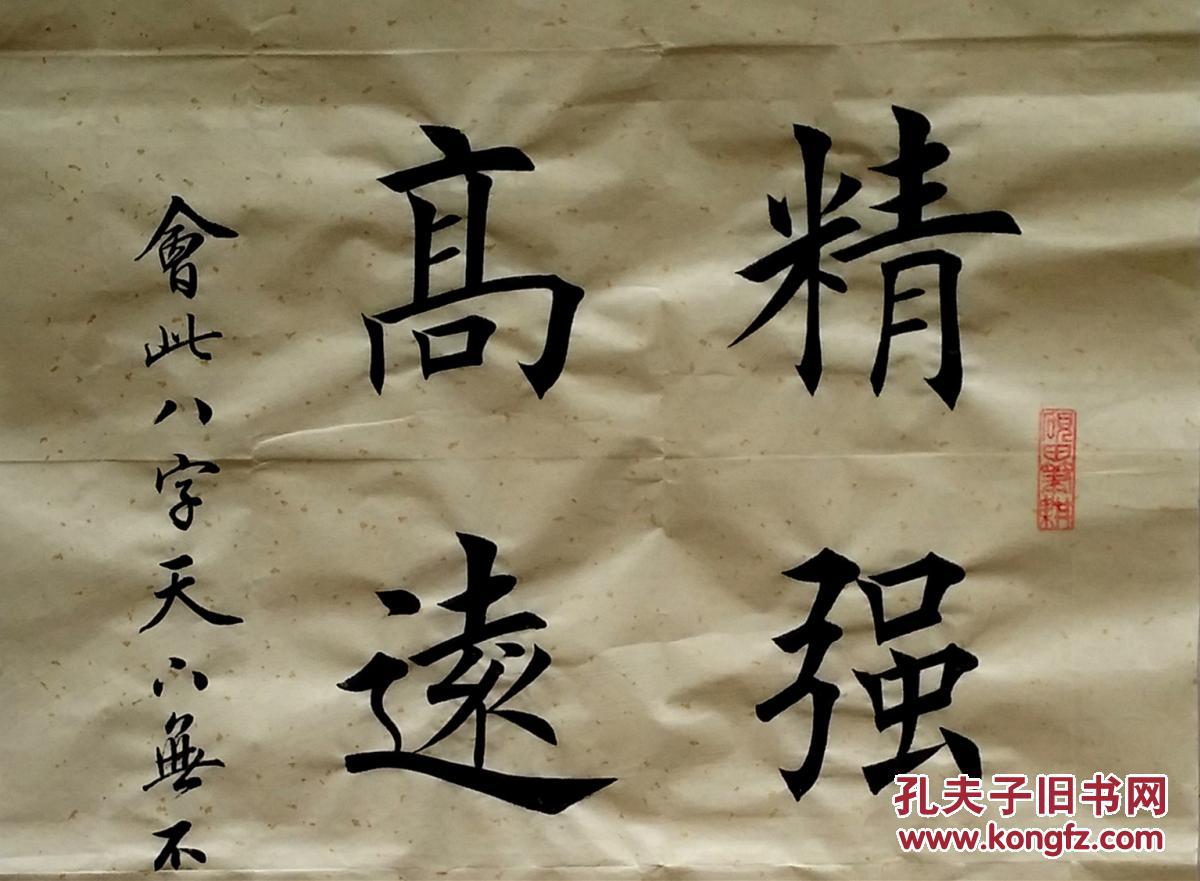 精强
高遠
會此八字天下無不
硯田筆耕
孔夫子旧书网
www.kongfz.com